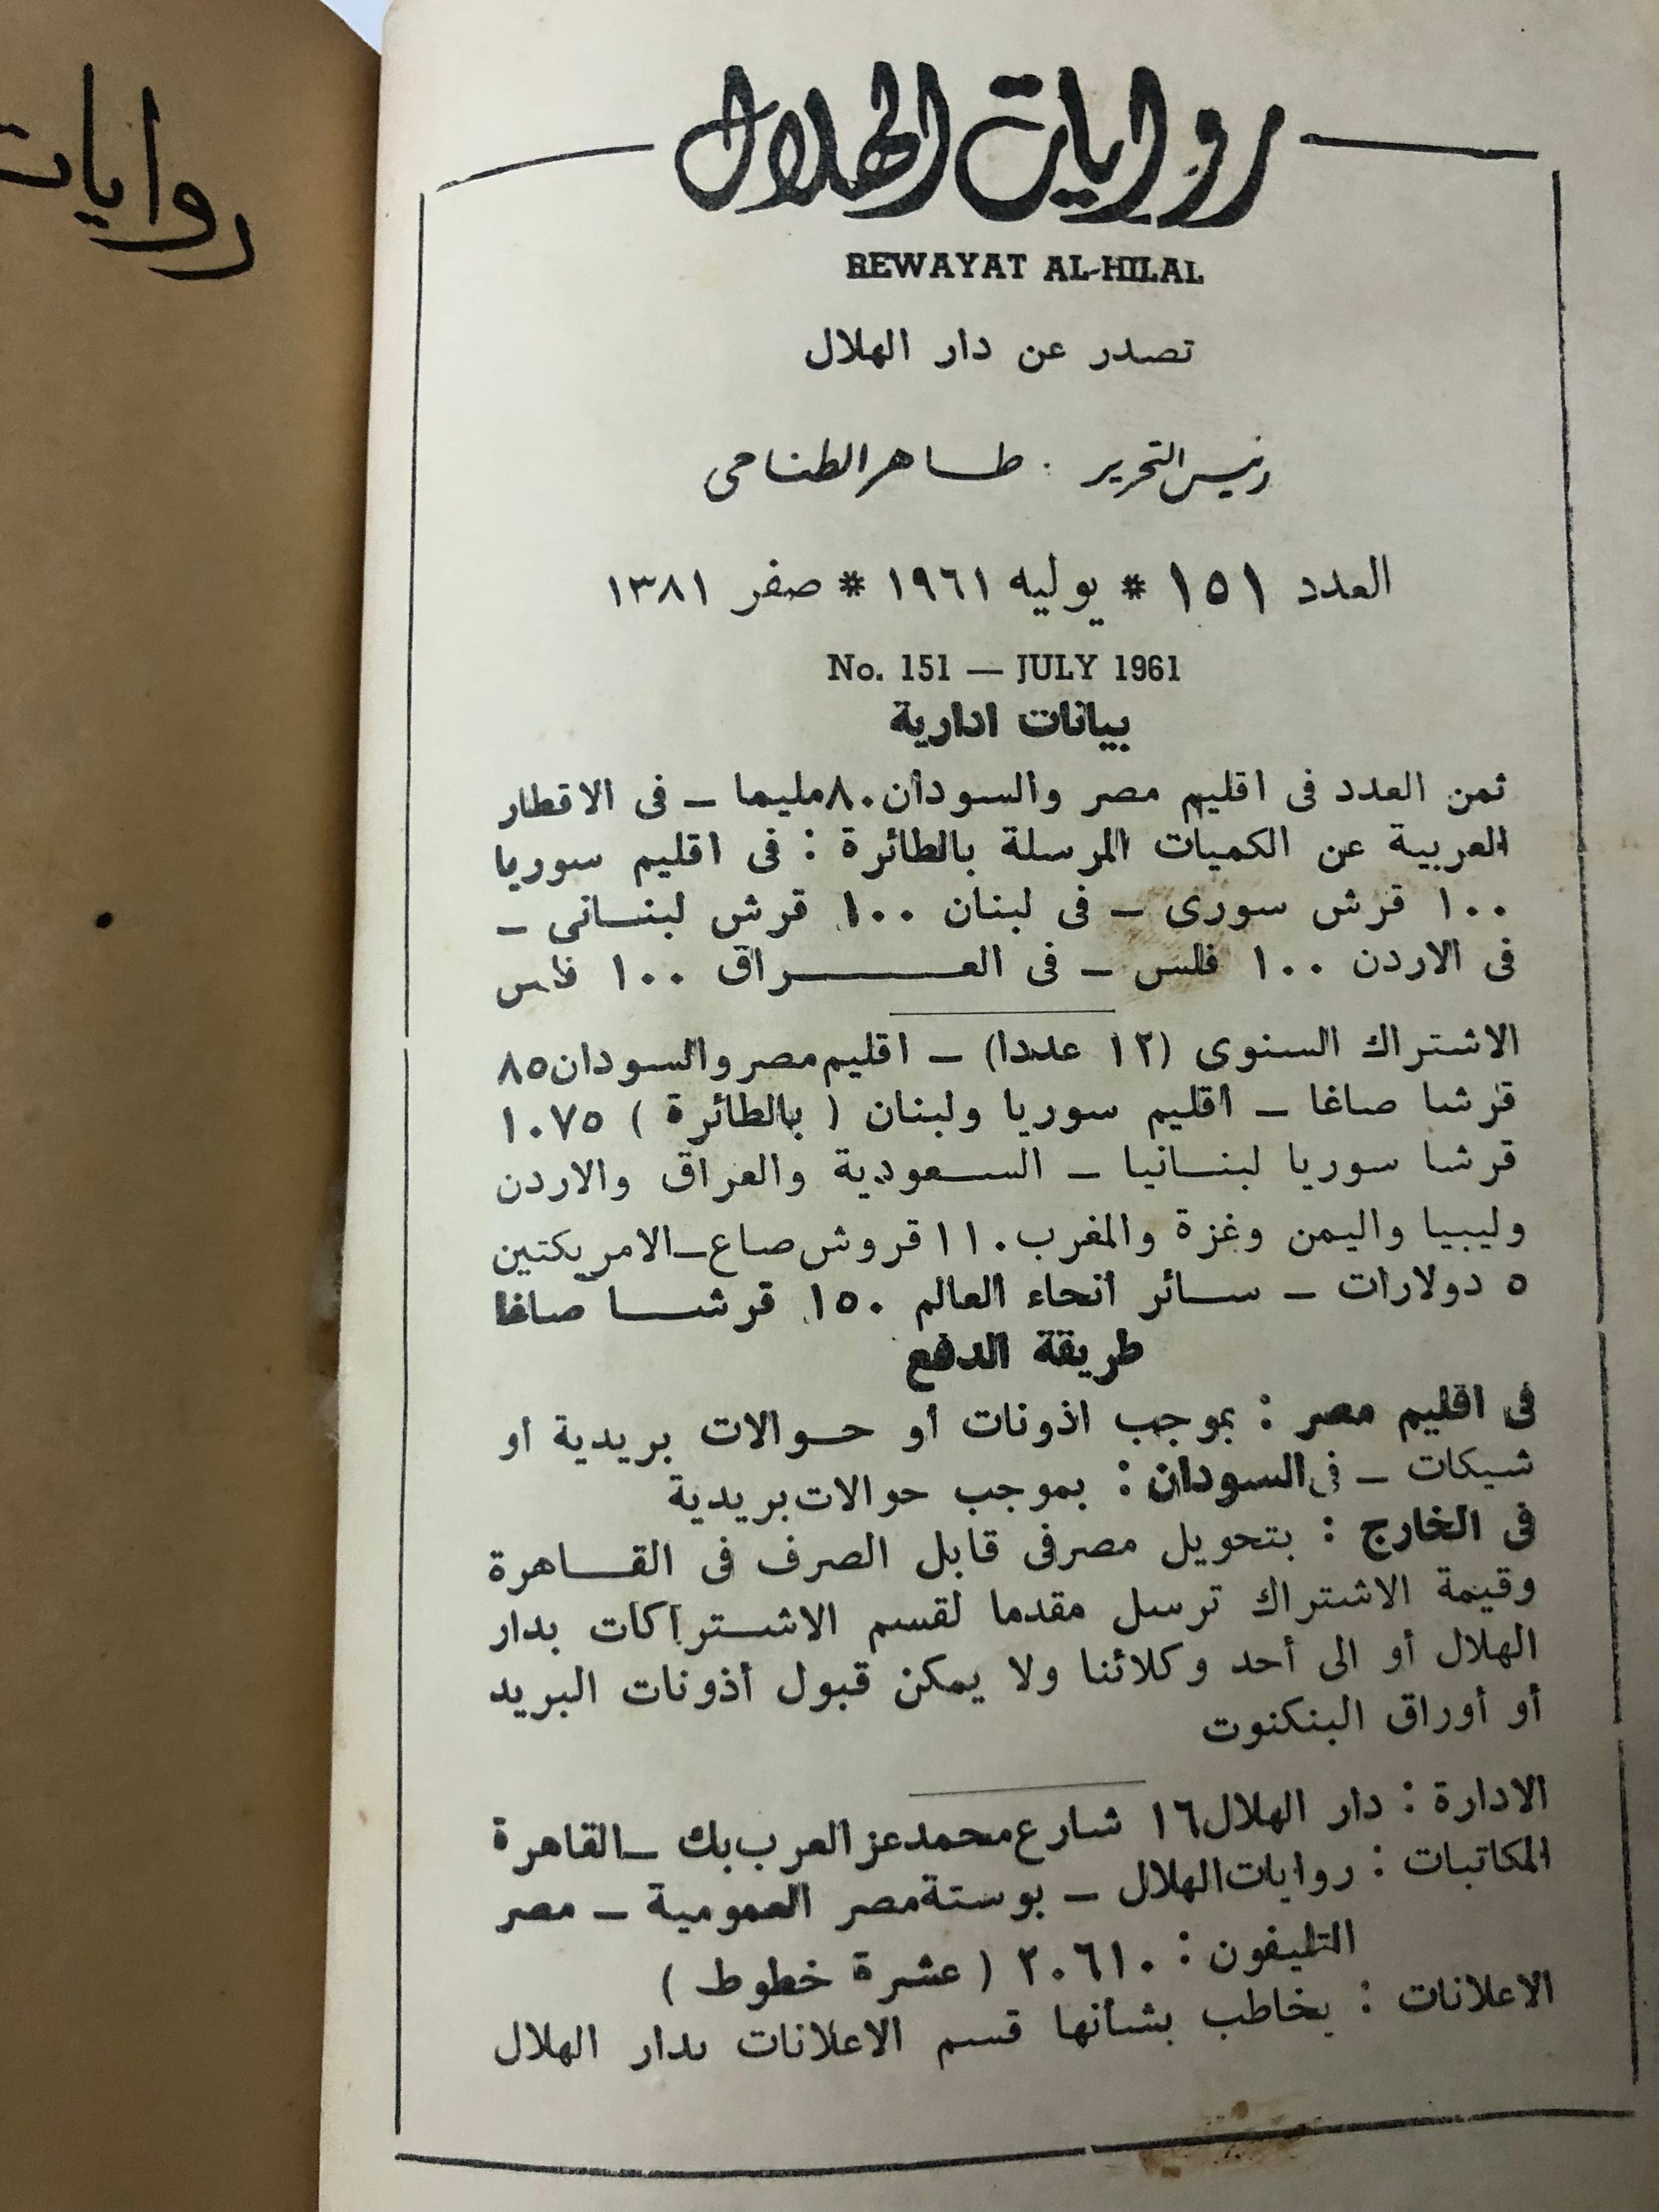 روايات
روايات الهلال
REWAYAT AL-HILAL
تصدر عن دار الهلال
رئيس التحرير : طاهر الطناحى
العدد ١٥١ * يوليه ١٩٦١ * صفر ١٣٨١
No. 151 — JULY 1961
بيانات ادارية
ثمن العدد فى اقليم مصر والسودان ٨٠ مليما ــ فى الاقطار
العربية عن الكميات المرسلة بالطائرة : فى اقليم سوريا
١٠٠ قرش سورى ــ فى لبنان ١٠٠ قرش لبنانى ــ
فى الاردن ١٠٠ فلس ــ فى العراق ١٠٠ فلس
الاشتراك السنوى (١٢ عددا) ــ اقليم مصر والسودان ٨٥
قرشا صاغا ــ اقليم سوريا ولبنان ( بالطائرة ) ١٠٧٥
قرشا سوريا لبنانيا ــ السعودية والعراق والاردن
وليبيا واليمن وغزة والمغرب ١١٠ قروش صاغ ــ الامريكتين
٥ دولارات ــ سائر أنحاء العالم ١٥٠ قرشا صاغا
طريقة الدفع
فى اقليم مصر : بموجب اذونات أو حوالات بريدية أو
شيكات ــ فى السودان : بموجب حوالات بريدية
فى الخارج : بتحويل مصرفى قابل الصرف فى القاهرة
وقيمة الاشتراك ترسل مقدما لقسم الاشتراكات بدار
الهلال أو الى أحد وكلائنا ولا يمكن قبول أذونات البريد
أو أوراق البنكنوت
الادارة : دار الهلال ١٦ شارع محمد عز العرب بك ــ القاهرة
المكاتبات : روايات الهلال ــ بوستة مصر العمومية ــ مصر
التليفون : ٢٠٦١٠ ( عشرة خطوط )
الاعلانات : يخاطب بشأنها قسم الاعلانات بدار الهلال